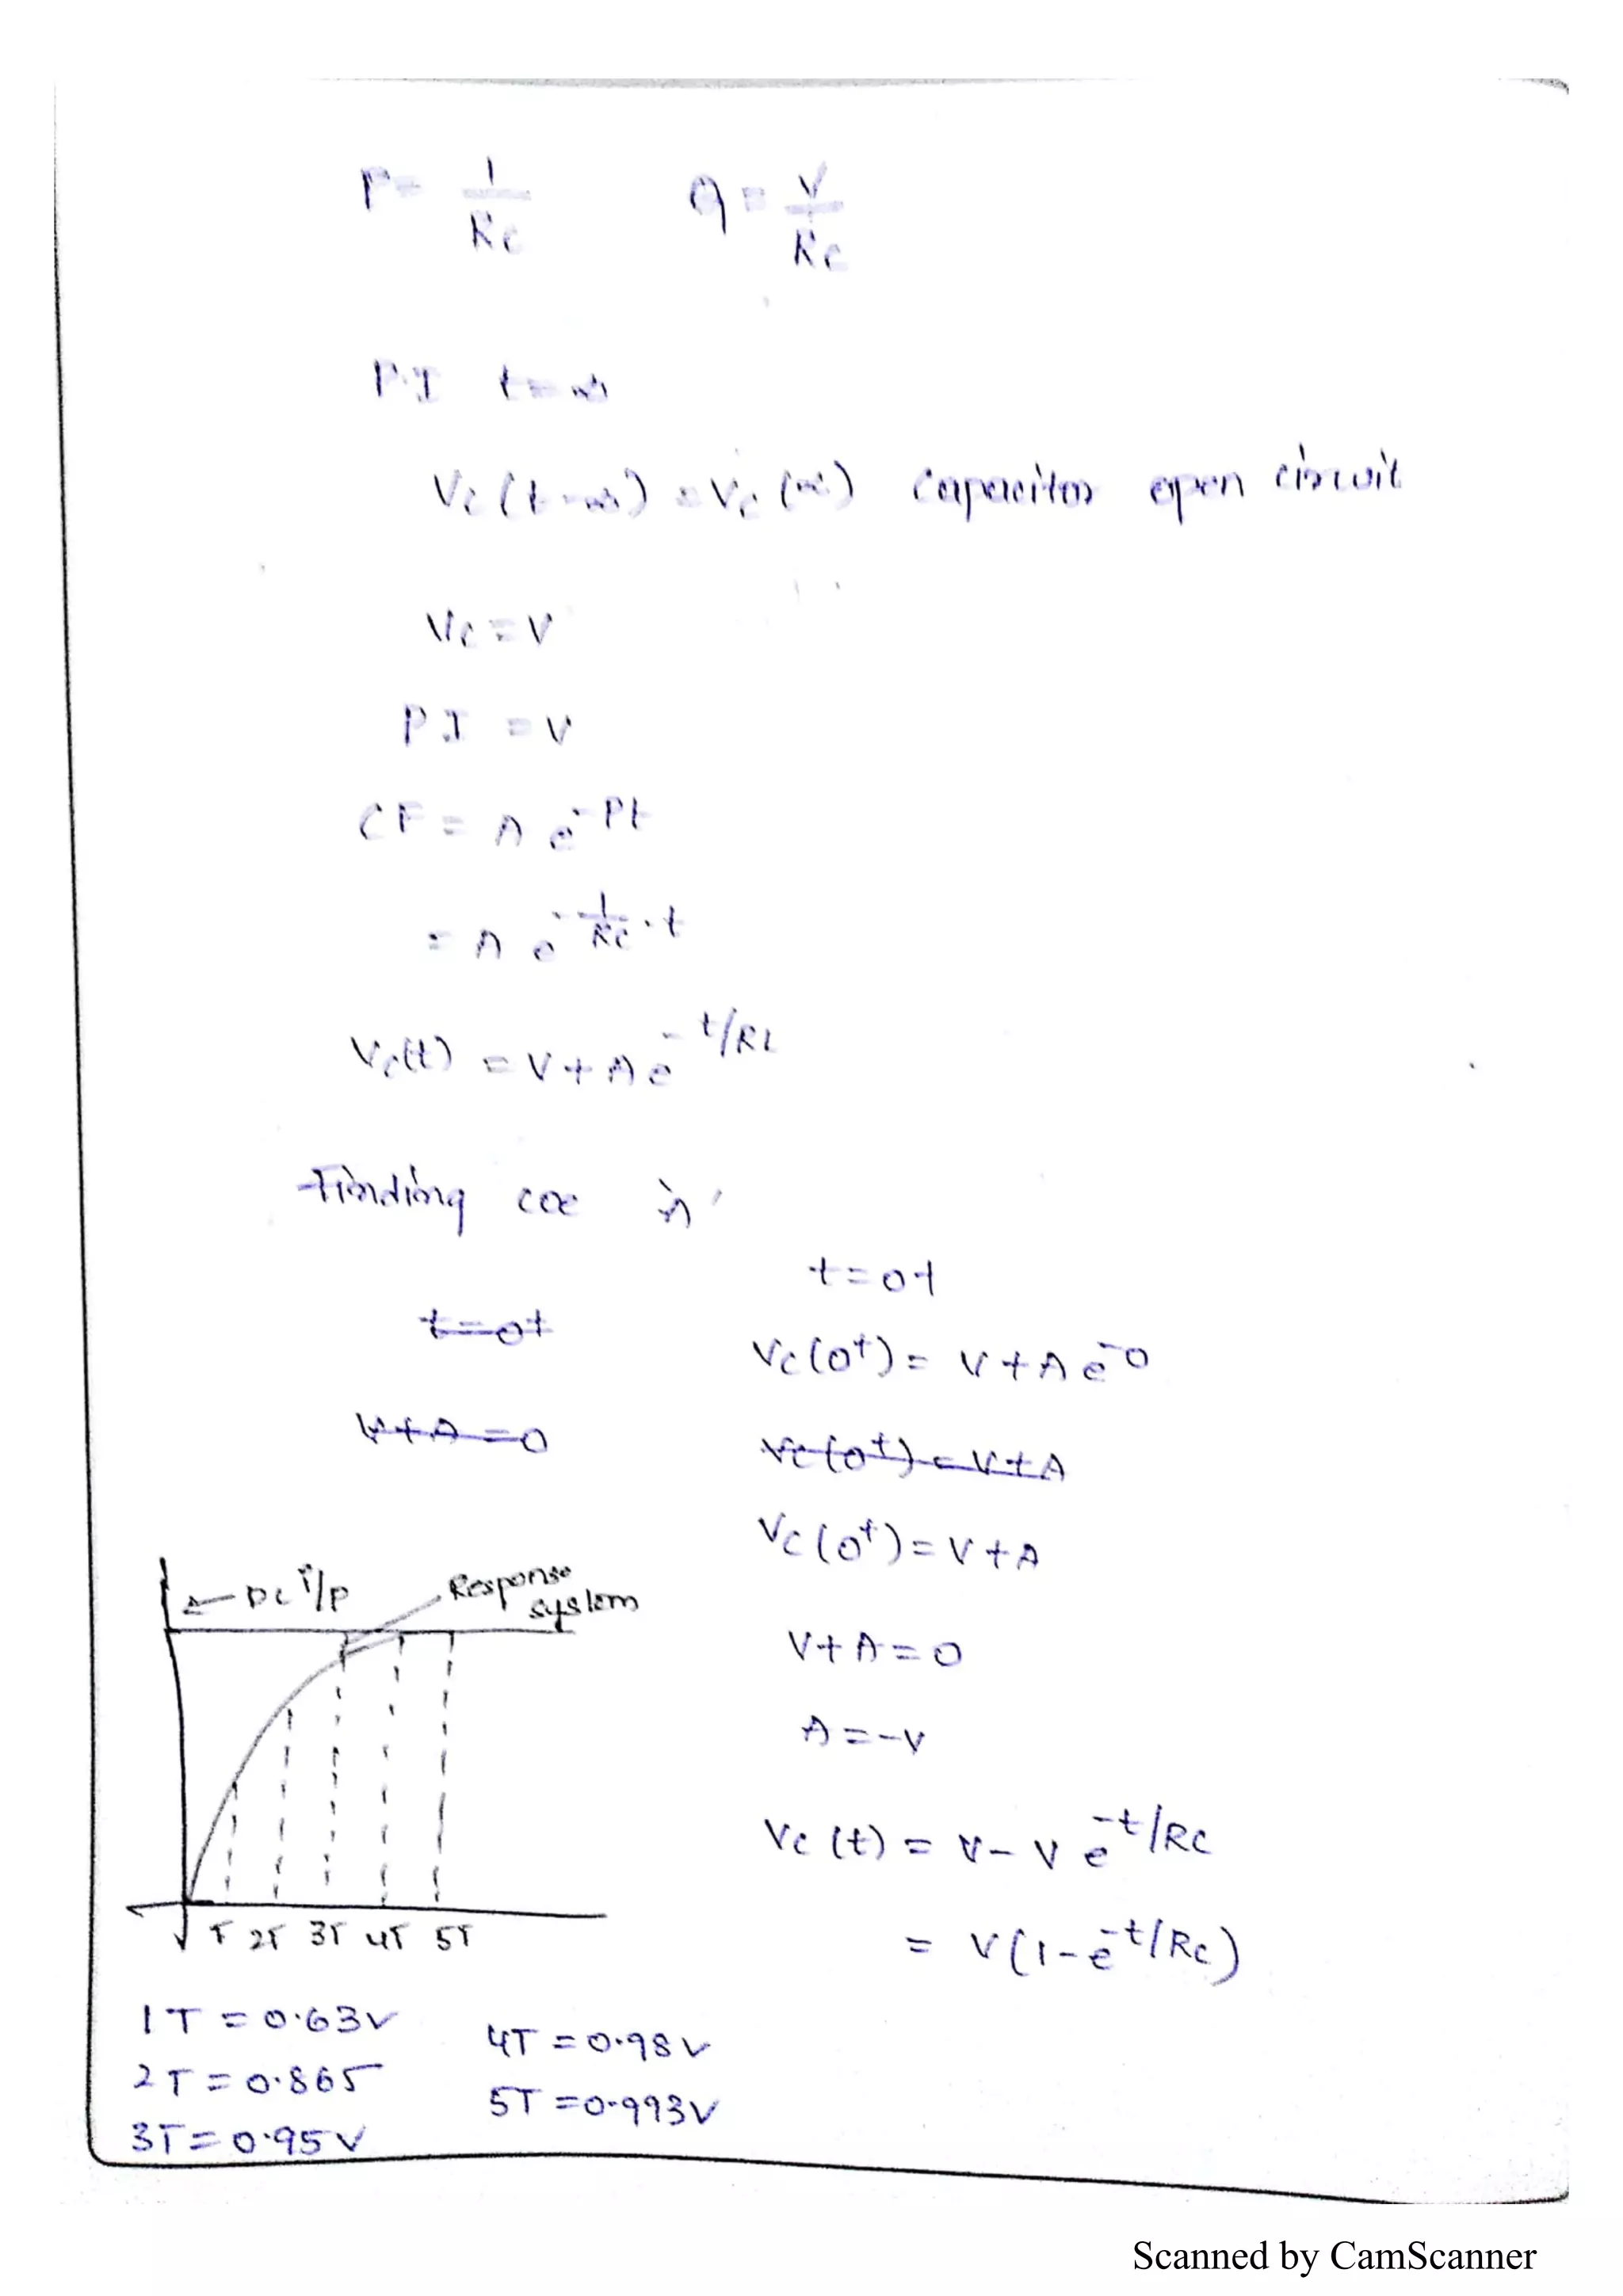 P = 1/RC    Q = V/RC
P.I t=∞
Vc(t=∞) = Vc(∞) capacitor open circuit
Vc = V
P.I = V
CF = A e^-Pt
= A e^-1/RC . t
Vc(t) = V + A e^-t/RC
Finding coe 'A'
t=0+
t=0+
Vc(0+) = V + A e^-0
V+A=0
Vc(0+) = V+A
Vc(0+) = V+A
V+A=0
A=-V
Vc(t) = V - V e^-t/RC
= V(1-e^-t/RC)
DC i/p
Response
system
T 2T 3T 4T 5T
1T = 0.63V
2T = 0.865
3T = 0.95V
4T = 0.98V
5T = 0.993V
Scanned by CamScanner